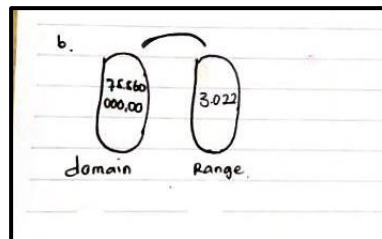 b.
75.560
000,00
3.022
domain
Range